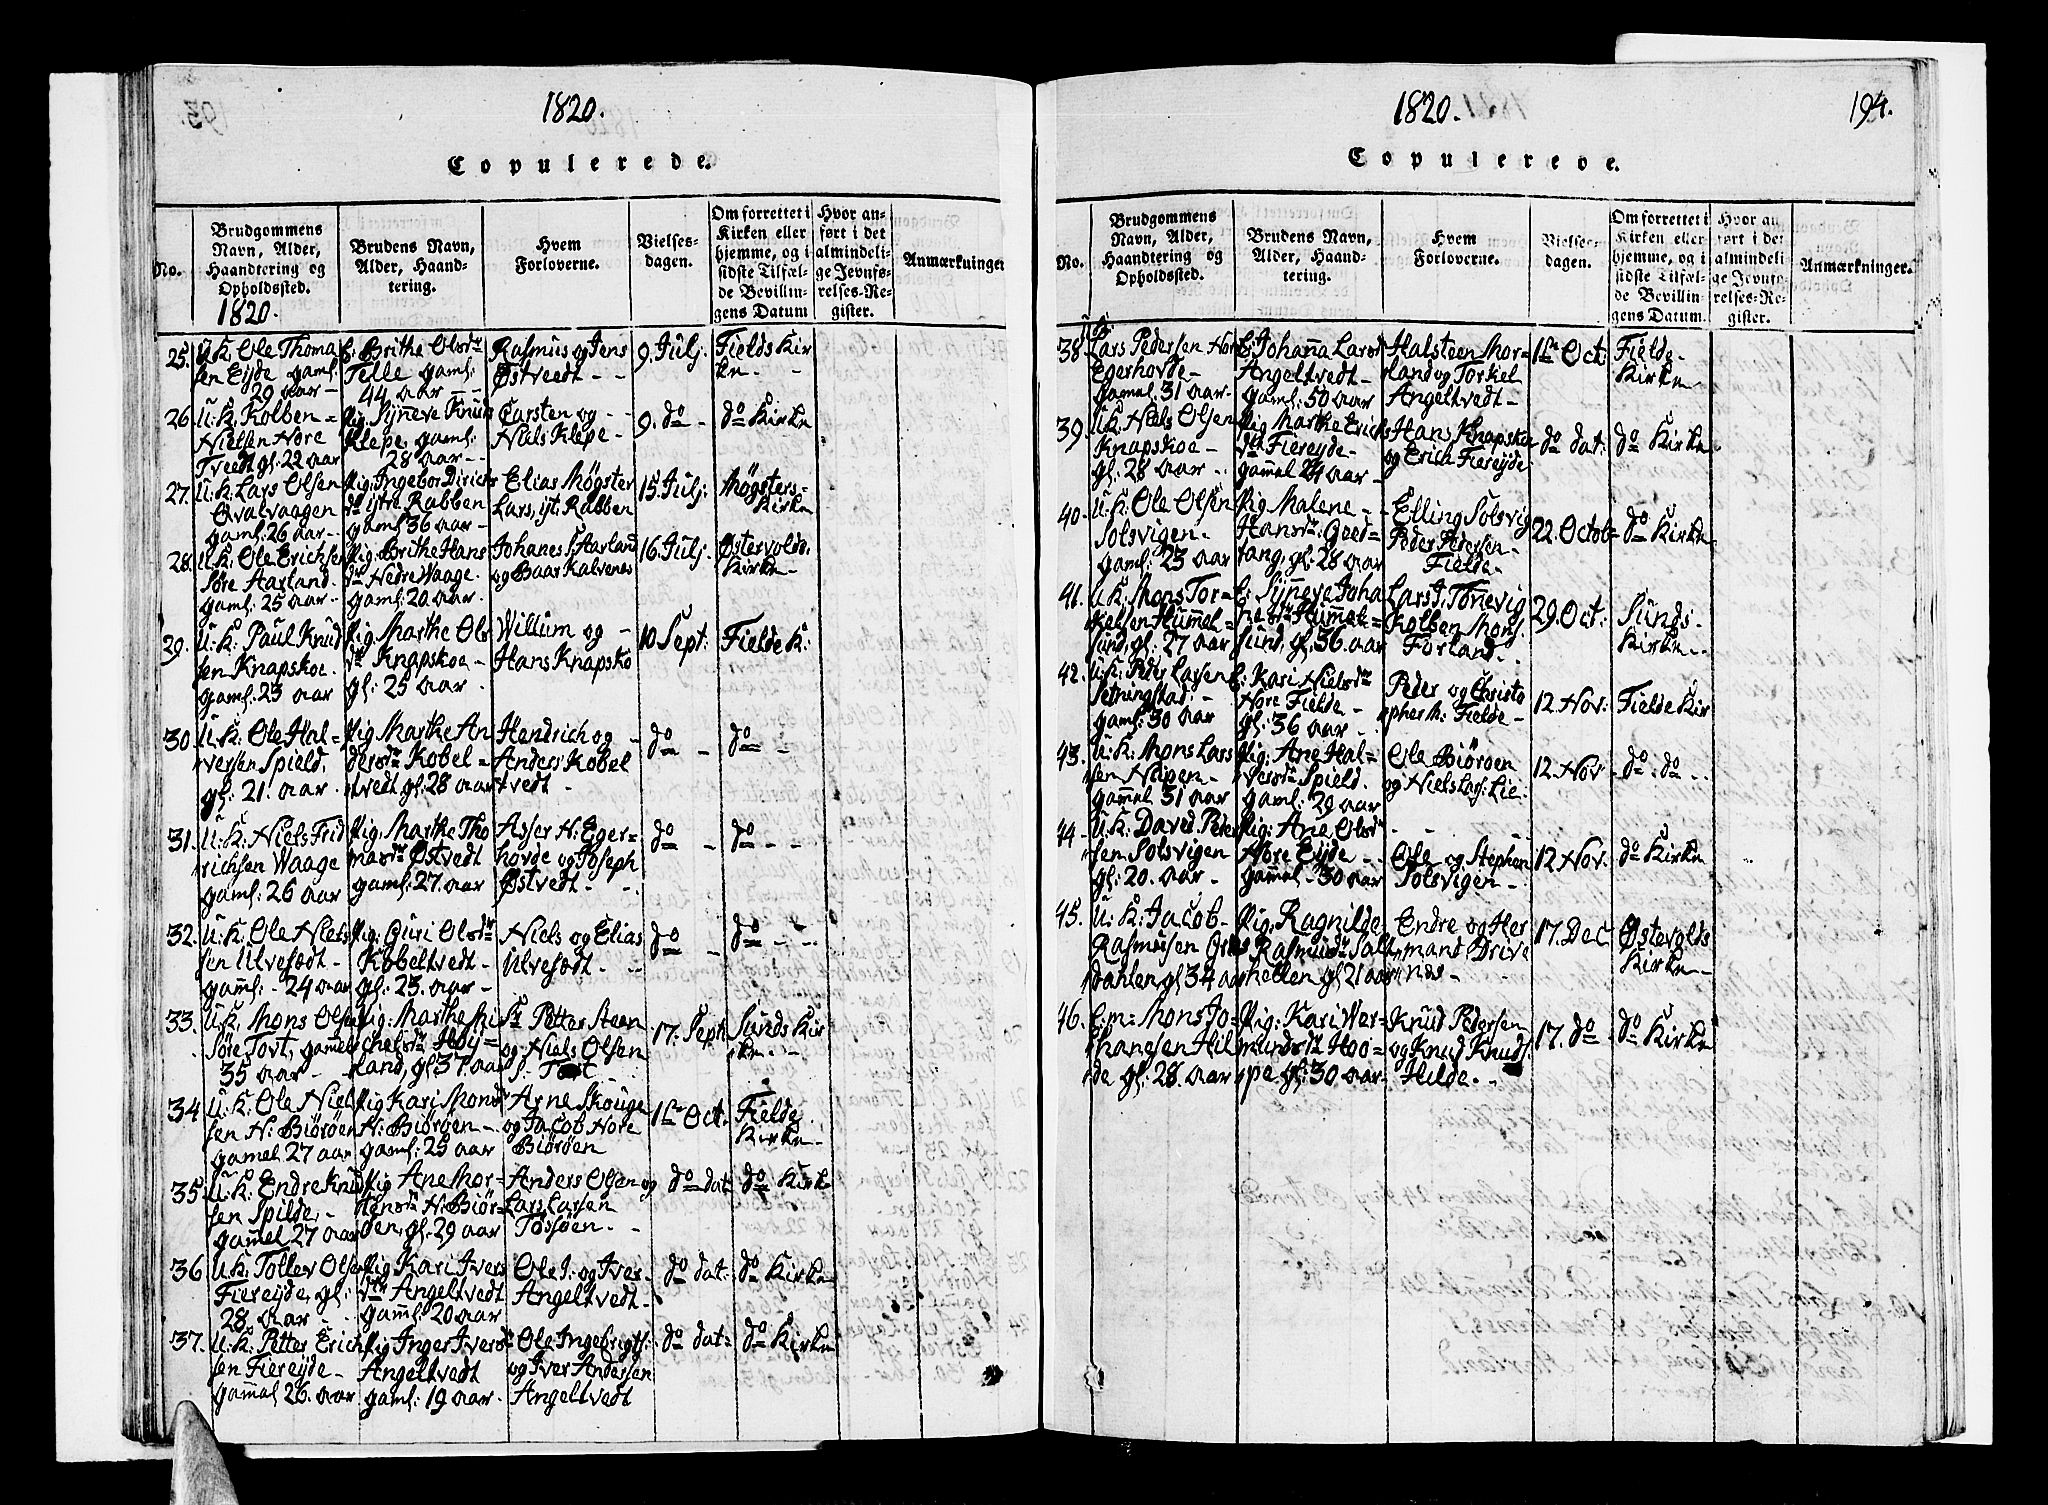 1820.
Copulerede.
No.
Brudgommens
Navn, Alder,
Haandtering og
Opholdssted.
1820.
Brudens Navn,
Alder, Haand-
tering.
Hvem
Forloverne.
Vielses-
dagen.
Om forrettet i
Kirken eller
hjemme, og i
sidste Tilfæl-
de Bevillin-
gens Datum
Hvor an-
ført i det
almindeli-
ge Jevnfø-
relses-Re-
gister.
Anmærkninger
25.
U.K. Ole Thoma
sen Eyde gaml:
29 aar -
E: Brithe Olsdr
Telle gaml:
44 aar -
Rasmus og Jens
Østveedt - -
9. Julj.
Fields Kir
ken. -
26.
U.K. Kolben =
Nielsen Nore
Tveedt gl: 22 aar
Pig. Synneve Knud
Klepe, gaml:
28 aar -
Carsten og - -
Niels Klepe -
9. do -
do Kirke
27.
U.K. Lars Olsen
Qvalvaagen
gaml: 26 aar -
Pig: Ingebor Dirichs
dr ystre Rabben
gaml: 36 aar -
Elias Møgster
Lars, yt: Rabben
15 Julj.
Møgsters-
Kirke
28.
U.K. Ole Erichsen
Søre Aarland.
gaml: 25 aar -
Pig: Brithe Hans
dr Nedre Waage.
gaml: 20 aar.
Johanes S: Aarland
og Baar Kalvenes
16 Julj.
Østervolds,
Kirke -
29.
U.K. Paul Knud
sen Knapskoe.
gaml: 23 aar
Pig. Marthe Ols
dr Knapskoe -
gl: 25 aar.
Willum og -
Hans Knapsko
10 Sept:
Fielde K:
30.
U.K: Ole Hal-
versen Spield.
gl: 21. aar.
Pig Marthe An
dersdr Kobel =
tvedt gl: 28 aar
Hendrich og -
Anders Kobel
tvedt -
do -
do -
31.
U.K: Niels Frid
richsen Waage
gaml: 26 aar
Pig. Marthe Tho
masdr Østvedt
gaml: 27. aar
Asser N: Eger-
hovde og Joseph
Østvedt - -
do -
do - -
32.
U.K. Ole Niels
sen Ulvesædt -
gaml: - 24 aar
Pig: Guri Olsdr
Kobeltvedt -
gl: 23. aar -
Niels og Elias
Ulvesædt -
do -
do - -
33.
U.K. Mons Olsen
Søre Tovt, gamel
35 aar -
Pig: Marthe Mi
chelsdr Høy=
land, gl 37 aar
Sr Petter Steen
og Niels Olsen
S. Tovt -
17. Sept
Sunds Kir
ke. -
34
U.K: Ole Niel
sen N: Biørøen
gamel 27 aar
Pig Kari Monsdr
N: Biørøen -
gaml: 25 aar
Arne Skouge
og Jacob Nore
Biørøen
1ste Oct.
Fielde
Kirke -
35.
U.K: Endre Knud
sen Spilde, -
gamel 27 aar
Pig Ane Mor-
tensdr N: Biør-
øen, gl: 29 aar
Anders Olsen og
Lars Larsen
Tossøen -
do dat
do Kirk
36
U.K. Tollev Olsen
Fiereyde, gl:
28. aar -
Pig Kari Ivers
dr Angeltvedt
gaml: 20 aar
Ole I: og Iver
Angeltvedt -
do dat:
do Kirke
37.
U.K. Petter Erich
sen Fiereyde -
gamel 26. aar
Pig Inger Iversdr
Angeltvedt
gaml: 19 aar -
Ole Ingebrigts:
og Iver Andersen
Angeltvedt
do dat:
do Kirke
1820.
194.
Copulerede.
No.
Brudgommens
Navn, Alder,
Haandtering og
Opholdssted.
Brudens Navn,
Alder, Haand-
tering.
Hvem
Forloverne.
Vielses-
dagen.
Om forrettet i
Kirken eller
hjemme, og i
sidste Tilfæl-
de Bevillin-
gens Datum.
Hvor an
ført i det
almindeli
ge Jevnfø-
relses-Re-
gister.
Anmærkninger.
38.
U.K.
Lars Pedersen Nor
Egerhovde -
Gamel 31 aar -
E: Johanna Larsdr
Angeltvedt -
gaml: 50 aar
Halsteen Mor-
land og Torkel
Angeltvedt -
1ste Oct:
Fielde-
Kirke
39.
U.K. Niels Olsen
Knapskoe -
gl: 28 aar -
Pig Marthe Erichs
dr Fiereyde -
gamel 24 aar -
Hans Knapsko
og Erich Fiereyde
do dat:
do Kirke
40.
U.K: Ole Olsen
Solsvigen -
gaml: 23 aar
Pig. Malene -
Hansdr: Geed-
tang, gl: 28 aar
Elling Solsvig
Peder Pedersen -
Fielde -
22. Octob
do Kirke
41.
U.K. Mons Tor=
kelsen Hummel=
sund, gl: 27 aar
E: Synneve Joha
nesdr Hummel=
sund, gl, 36. aar
Lars J. Tønevig
Kolben Mons.
Forland. -
29. Oct:
Sunds-
Kirke -
42.
U.K: Peder Larsen
Sehingstad, -
gaml: 30 aar
E: Kari Nielsdr
Nore Fielde -
gl: 36 aar -
Peder og Christo
pher M: Fielde -
12 Nov:
Fielde Kir
43.
U.K: Mons Lars
sen Nipen -
gamel 31 aar
Pig: Ane Hal-
versdr Spield.
gaml: 29 aar
Ole Biørøen
og Niels Lars: Lie.
12. Nov -
do: do - -
44.
U.K: David Peder
sen Solsvigen
gl: 20. aar -
Pig: Ane Olsdr
Nore Eyde - -
gamel - 30 aar
Ole og Stephen
Solsvigen -
12 Nov.
do Kirke
45.
U.K: Jacob -
Rasmusen Grøs
dahlen, gl 34 aar
Pig. Ragnilde
Rasmusdr Salt
hellen gl 21 aar
Endre og Her
mand Drive
nes -
17. Dec
Østevolds
Kirke -
46.
E.m: Mons Jo-
hannesen Hil
de gl: 28. aar
Pig: Kari Wer-
mundsdr Hoo=
pe, gl: 30 aar
Knud Pedersen
og Knud Knuds:
Hilde. -
17. do -
do Kirke